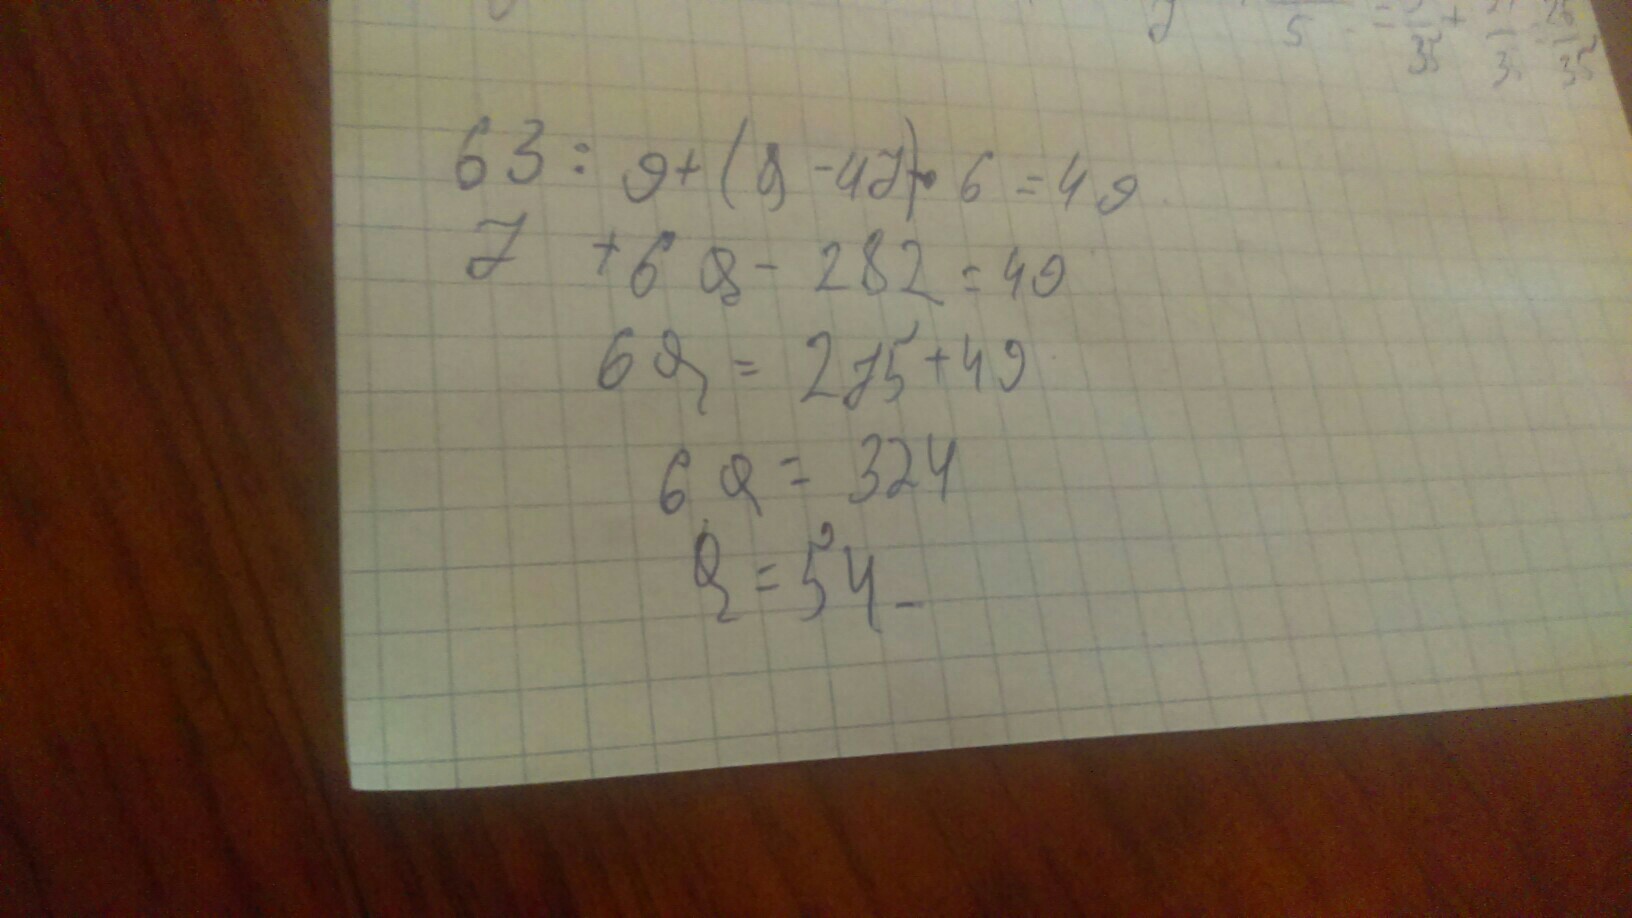 7 5 = 5/35 + 21/35 = 26/35
63 : 9 + (a - 47) • 6 = 49
7 + 6 a - 282 = 49
6 a = 275 + 49
6 a = 324
a = 54